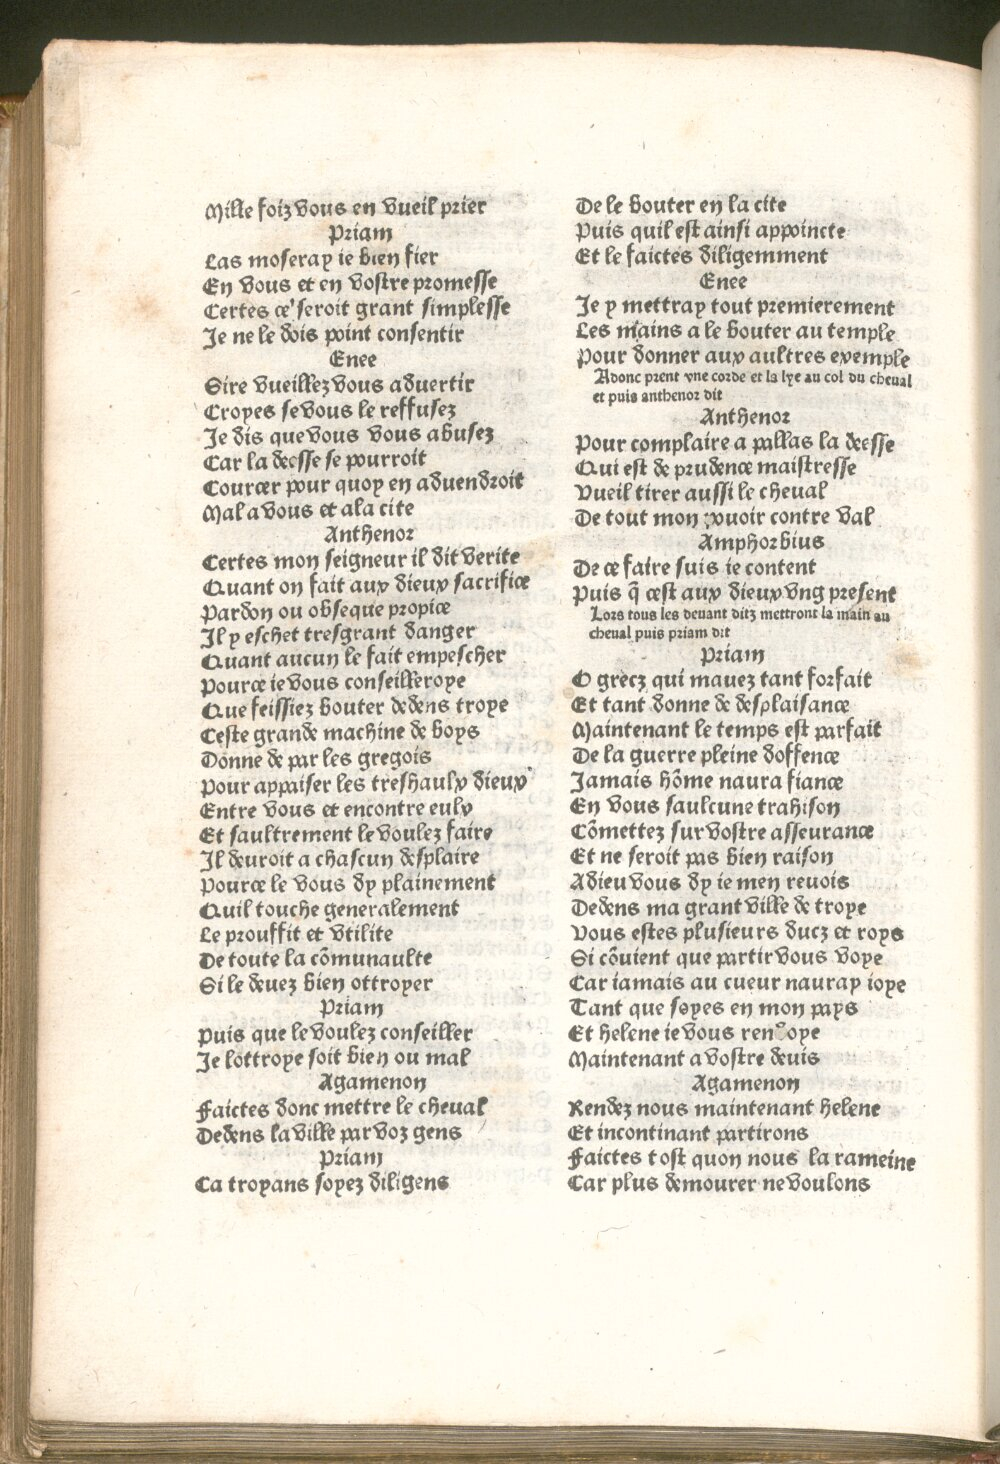 Mille foiz vous en vueil prier
Priam
Las moseray ie bien fier
En vous et en vostre promesse
Certes ce seroit grant simplesse
Je ne le dois point consentir
Enee
Sire vueillez vous advertir
Croyes se vous le reffusez
Je dis que vous vous abusez
Car la deesse se pourroit
Courcer pour quoy en advendroit
Mal a vous et a la cite
Anthenor
Certes mon seigneur il dit verite
Quant on fait aux dieux sacrifice
Pardon ou obseque propice
Il y eschet tresgrant danger
Quant aucun le fait empescher
Pource ie vous conseilleroye
Que feissiez bouter dedens troye
Ceste grande machine de boys
Donne de par les gregois
Pour appaiser les treshaulx dieux
Entre vous et encontre eulx
Et saultrement le voulez faire
Il devroit a chascun desplaire
Pource le vous dy plainement
Quil touche generalement
Le prouffit et vtilite
De toute la cōmunaulte
Si le devez bien ottroyer
Priam
Puis que le voulez conseiller
Je lottroye soit bien ou mal
Agamenon
Faictes donc mettre le cheval
Dedens la ville par voz gens
Priam
Ca troyans soyez diligens
De le bouter en la cite
Puis quil est ainsi appoincte
Et le faictes diligemment
Enee
Je y mettray tout premierement
Les mains a le bouter au temple
Pour donner aux aultres exemple
Adonc prent vne corde et la lye au col du cheval
et puis anthenor dit
Anthenor
Pour complaire a pallas la deesse
Qui est de prudence maistresse
Vueil tirer aussi le cheval
De tout mon pouoir contre val
Amphorbius
De ce faire suis ie content
Puis q̄ cest aux dieux vng present
Lors tous les deuant ditz mettront la main au
cheval puis priam dit
Priam
O grecz qui mavez tant forfait
Et tant donne de desplaisance
Maintenant le temps est parfait
De la guerre pleine doffence
Jamais hōme naura fiance
En vous saulcune trahison
Cōmettez sur vostre asseurance
Et ne seroit pas bien raison
Adieu vous dy ie men revois
Dedens ma grant ville de troye
Vous estes plusieurs ducz et roys
Si cōuient que partir vous voye
Car iamais au cueur nauray ioye
Tant que soyes en mon pays
Et helene ie vous renvoye
Maintenant a vostre devis
Agamenon
Rendez nous maintenant helene
Et incontinant partirons
Faictes tost quon nous la rameine
Car plus demourer ne voulons